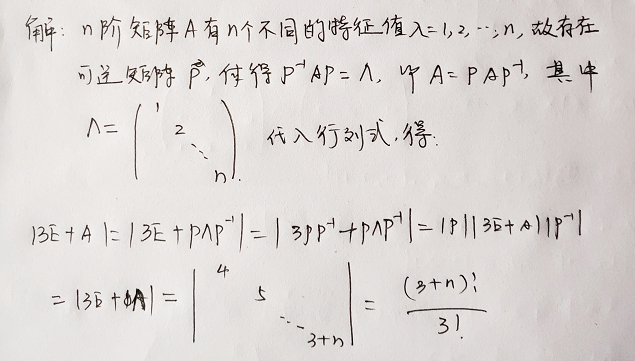 解: n阶矩阵A有n个不同的特征值λ=1,2,…,n, 故存在
可逆矩阵 P, 使得 P⁻¹AP=Λ, 即 A=PΛP⁻¹, 其中
Λ= ( 1 2 ⋱ n ) 代入行列式,得:
|3E+A|=|3E+PΛP⁻¹|=|3PP⁻¹+PΛP⁻¹|=|P||3E+Λ||P⁻¹|
=|3E+Λ|= | 4 5 ⋱ 3+n | = (3+n)! / 3!